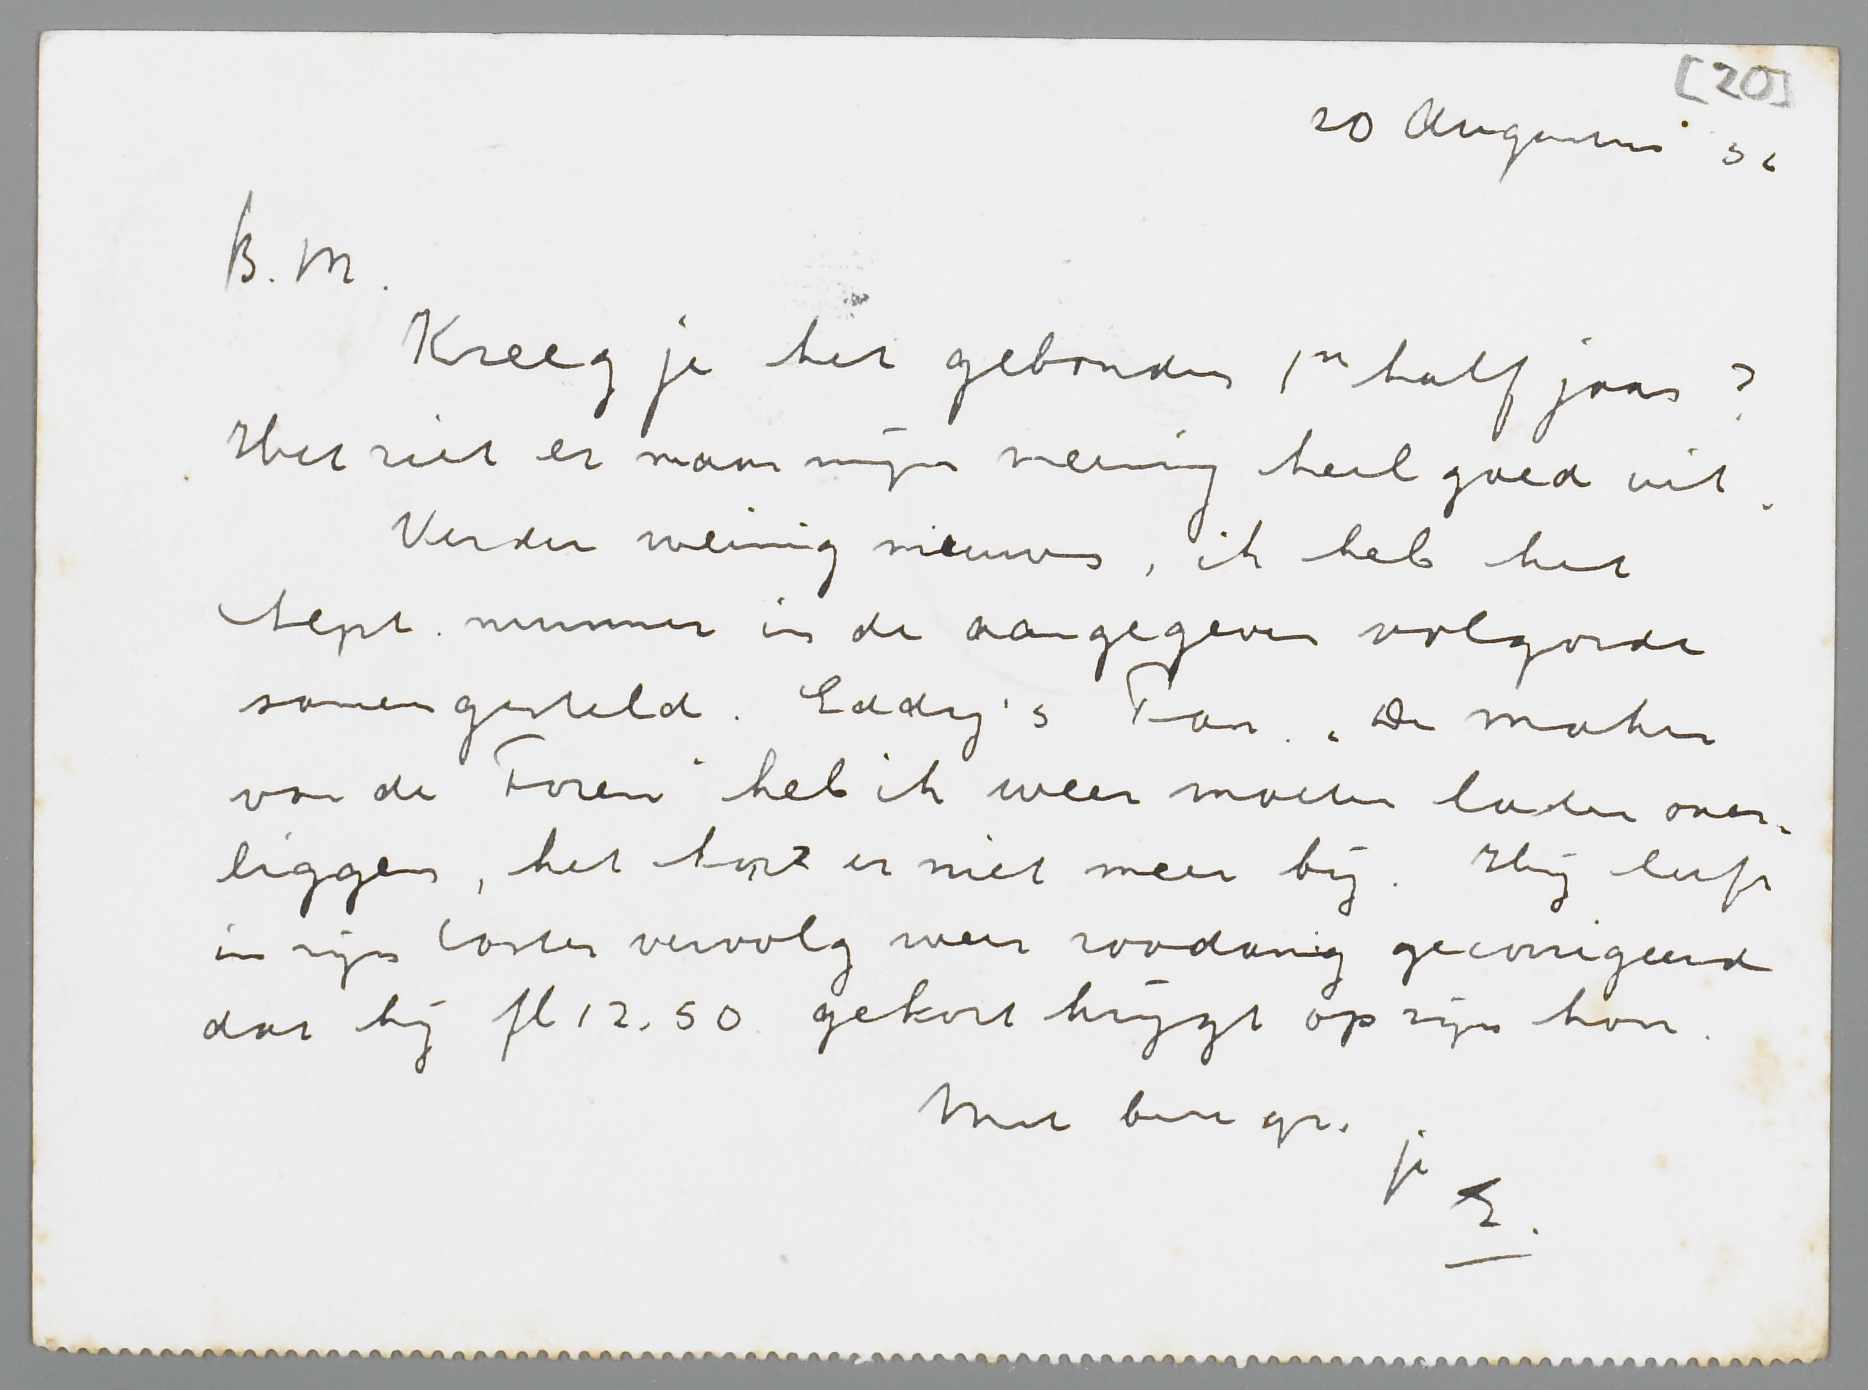 [20]
20 Augustus '32
B. M.
Kreeg je het gebonden 1ste half jaar?
Het ziet er naar mijn meening heel goed uit.
Verder weinig nieuws, ik heb het
Sept. nummer in de aangegeven volgorde
samengesteld. Eddy's Pan. "De maker
van de Foren" heb ik weer moeten laten over-
liggen, het kon er niet meer bij. Hij heeft
in zijn Coster vervolg weer zoodanig gecorrigeerd
dat hij fl 12.50 gekort krijgt op zijn hon.
Met beste gr.
je
E.